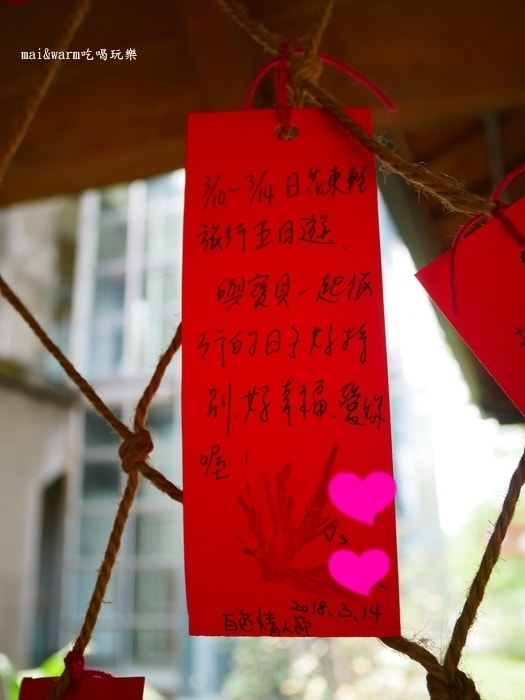 mai&warm吃喝玩樂
3/10-3/14日花東輕
旅行五日遊、
與寶貝一起旅
行的日子好特
別、好幸福、愛妳
喔！
Vs
2018.3.14
白色情人節